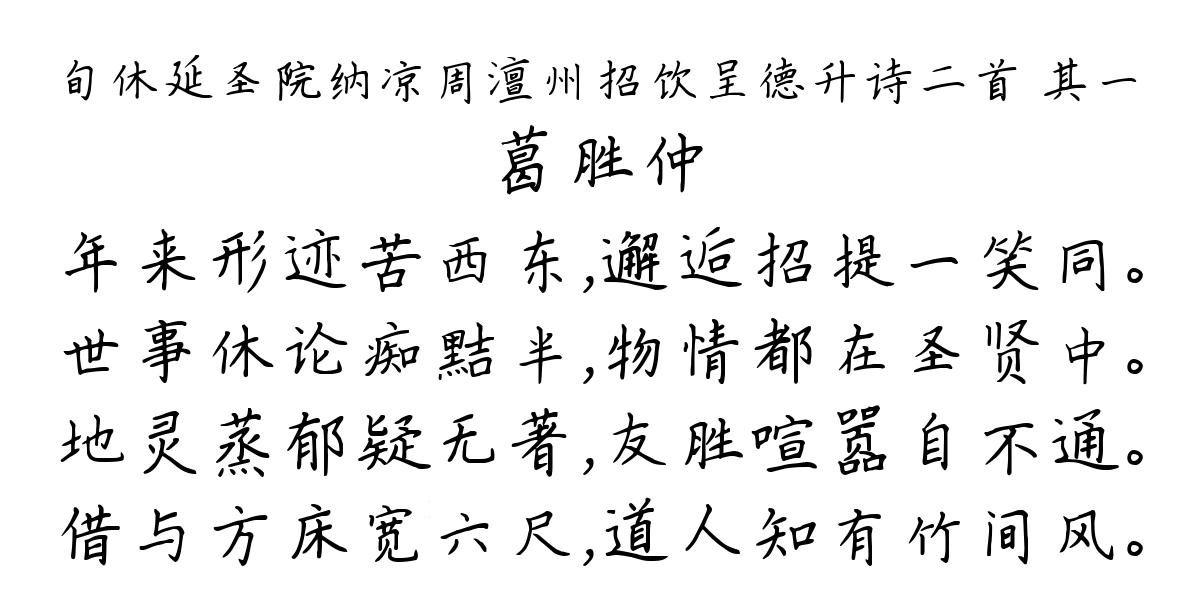 旬休延圣院纳凉周澶州招饮呈德升诗二首 其一
葛胜仲
年来形迹苦西东,邂逅招提一笑同。
世事休论痴黠半,物情都在圣贤中。
地灵蒸郁疑无著,友胜喧嚣自不通。
借与方床宽六尺,道人知有竹间风。